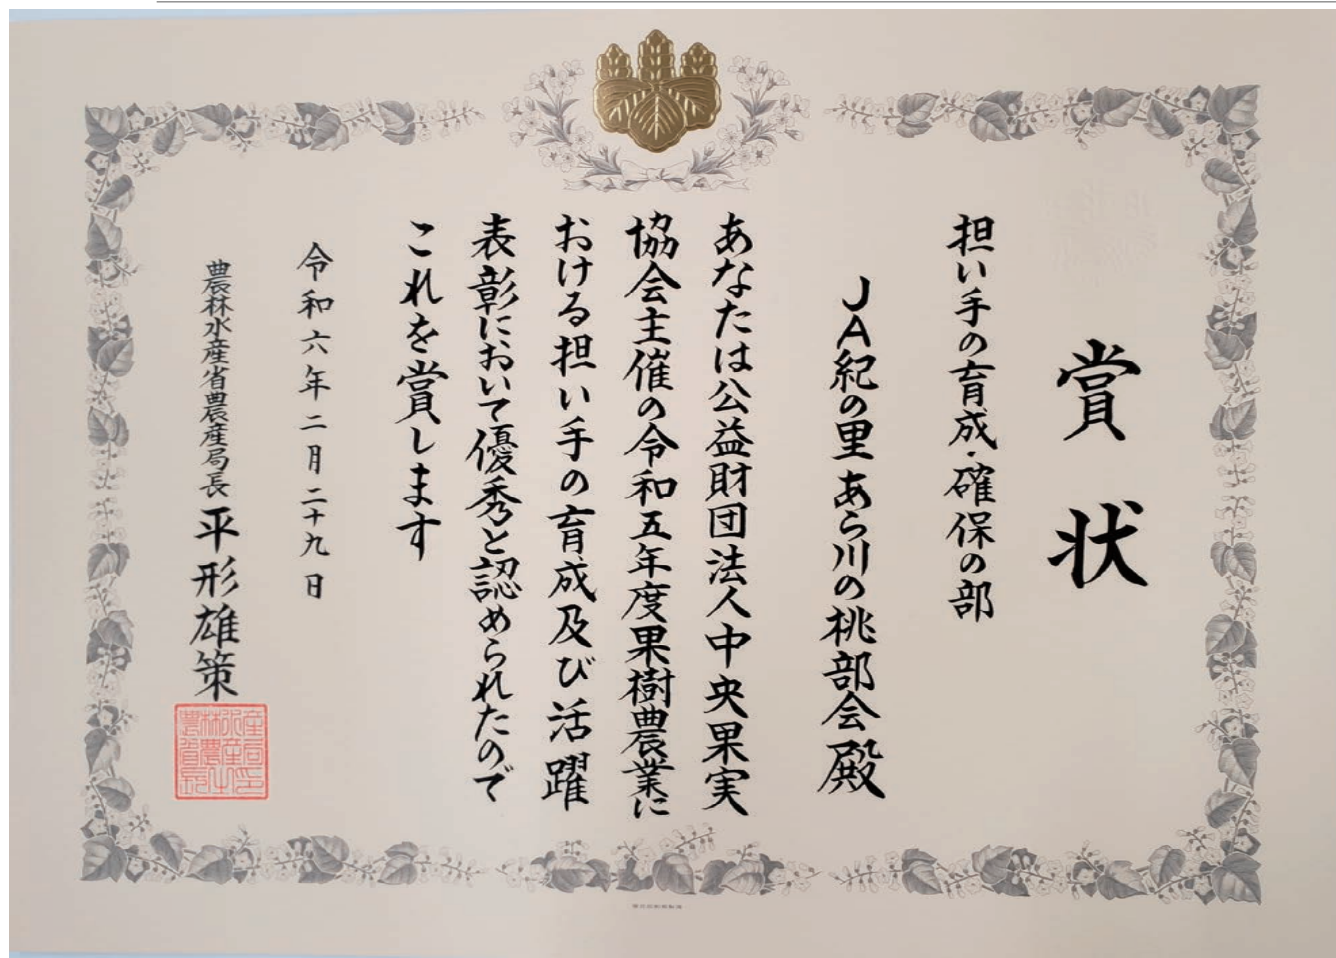 賞状
担い手の育成・確保の部
JA紀の里あら川の桃部会殿
あなたは公益財団法人中央果実
協会主催の令和五年度果樹農業に
おける担い手の育成及び活躍
表彰において優秀と認められたので
これを賞します
令和六年二月二十九日
農林水産省農産局長 平形雄策